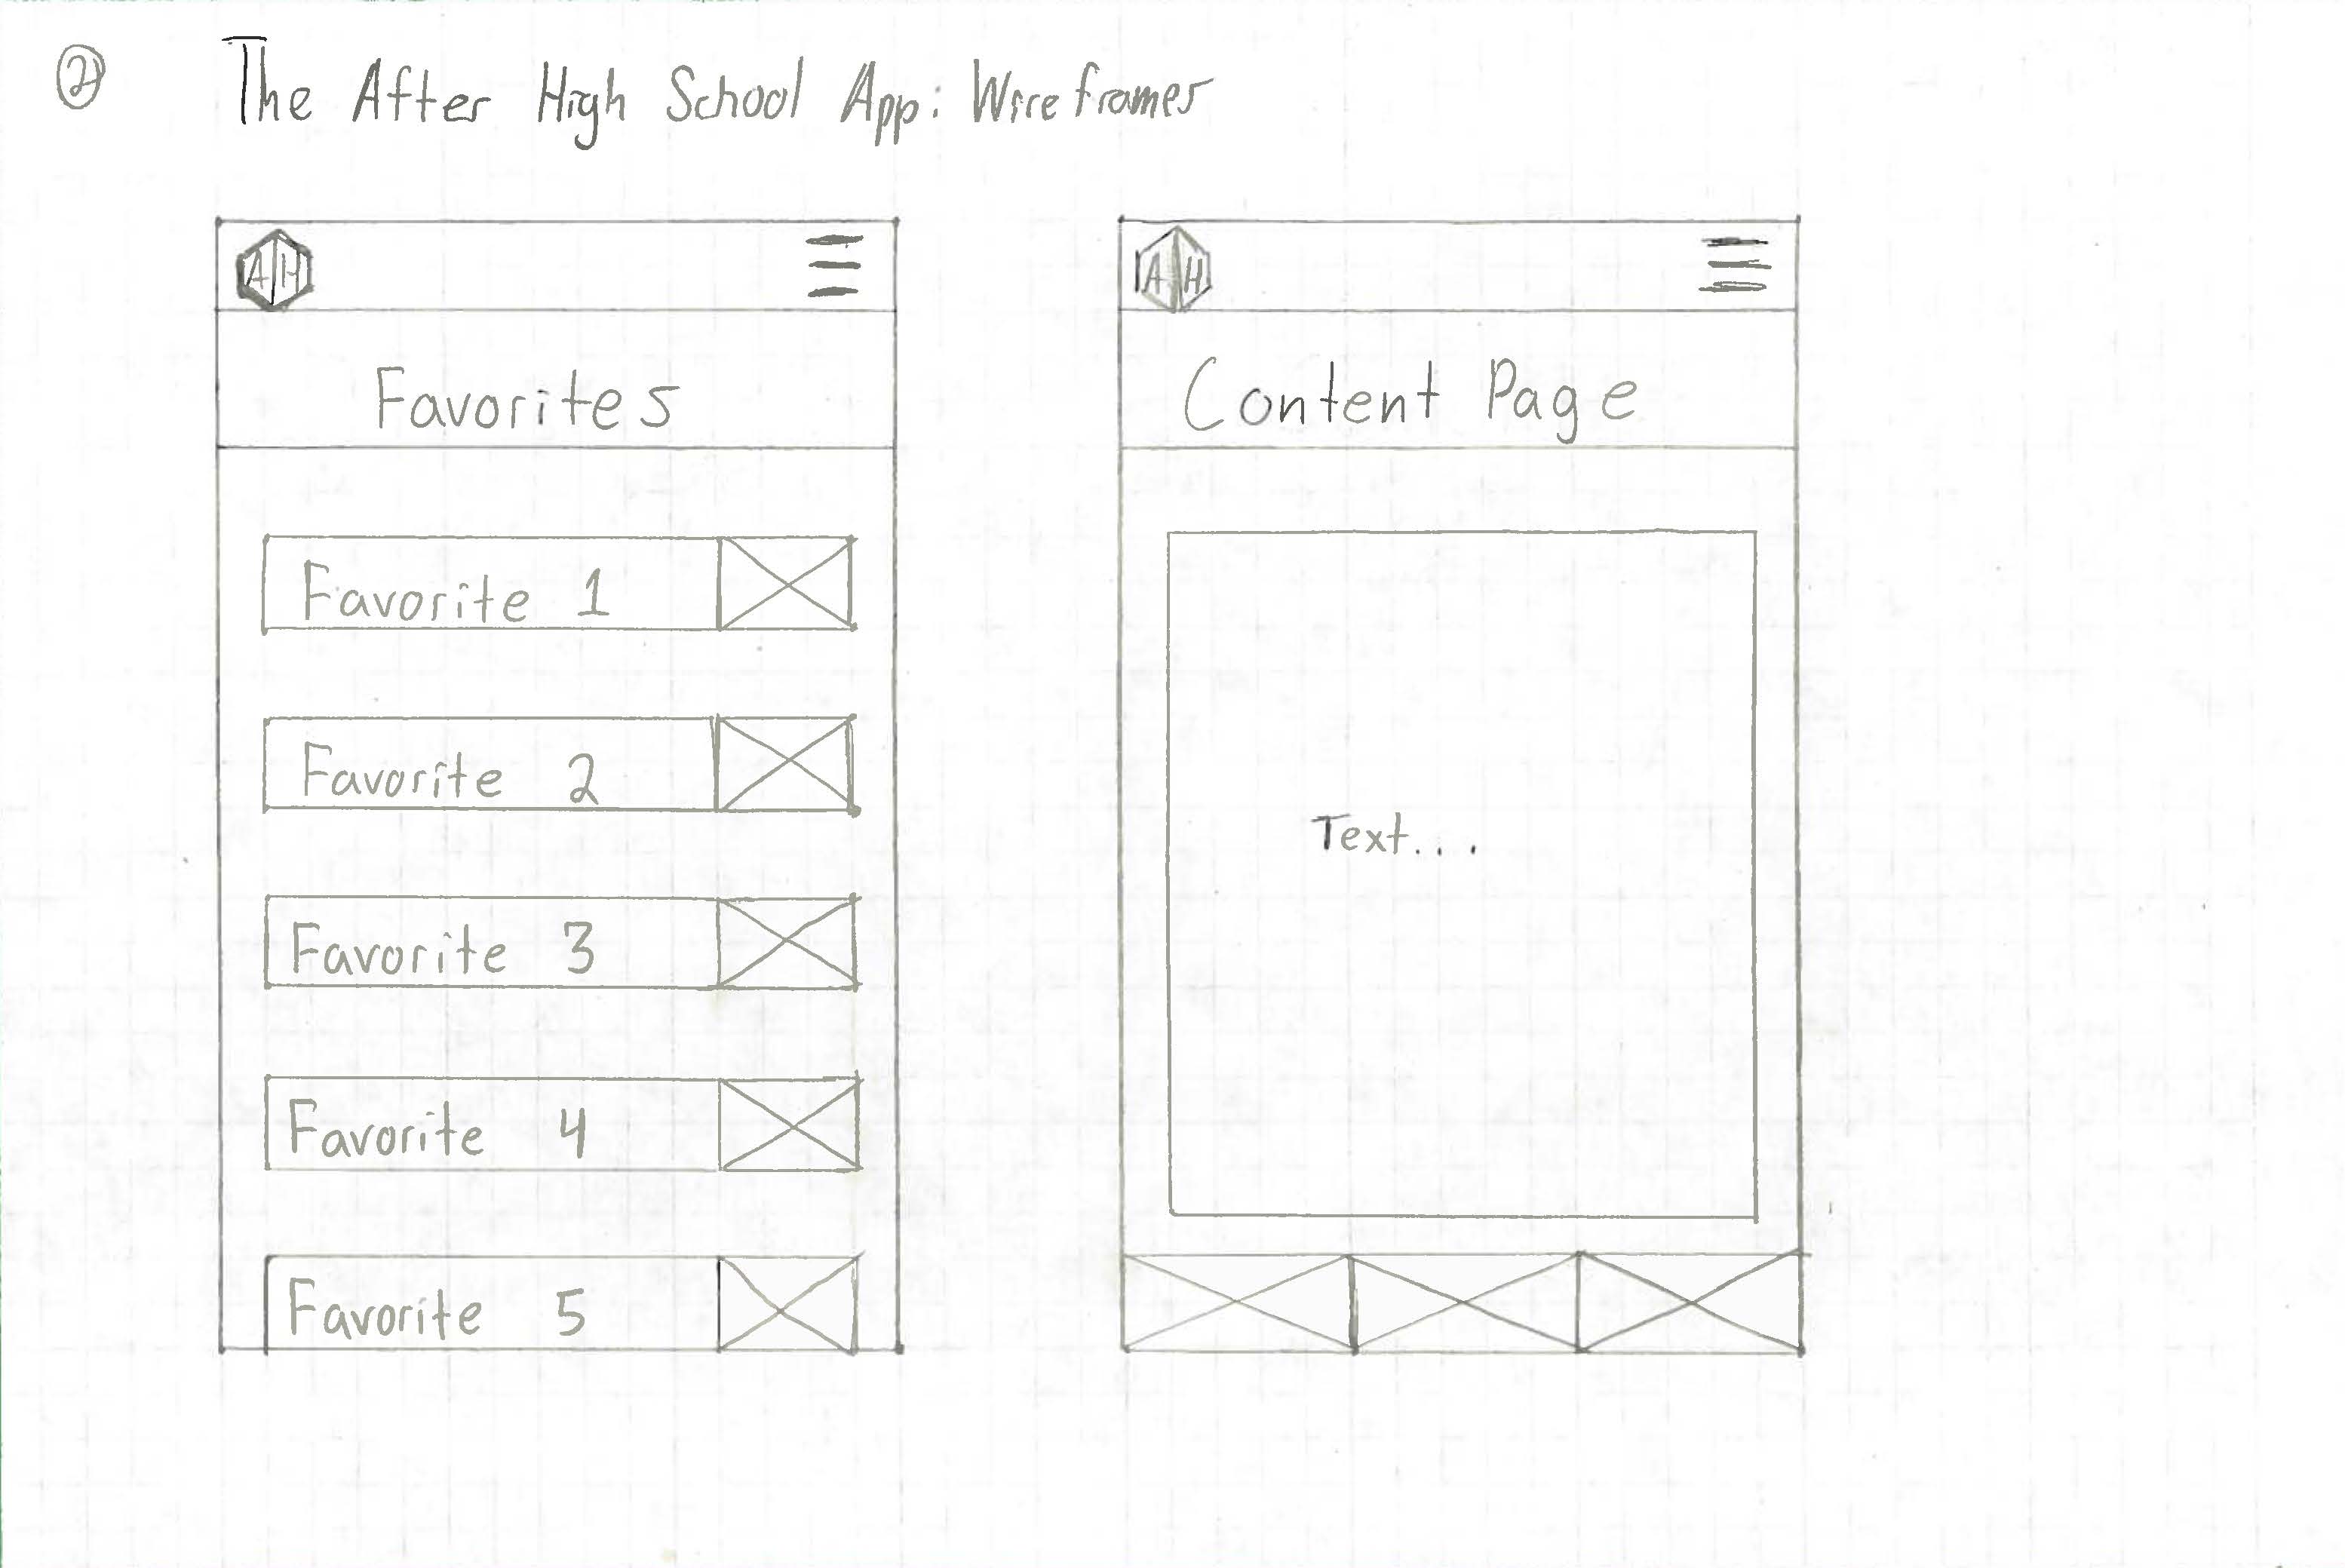 2
The After High School App: Wireframes
A H
Favorites
Favorite 1
Favorite 2
Favorite 3
Favorite 4
Favorite 5
A H
Content Page
Text...